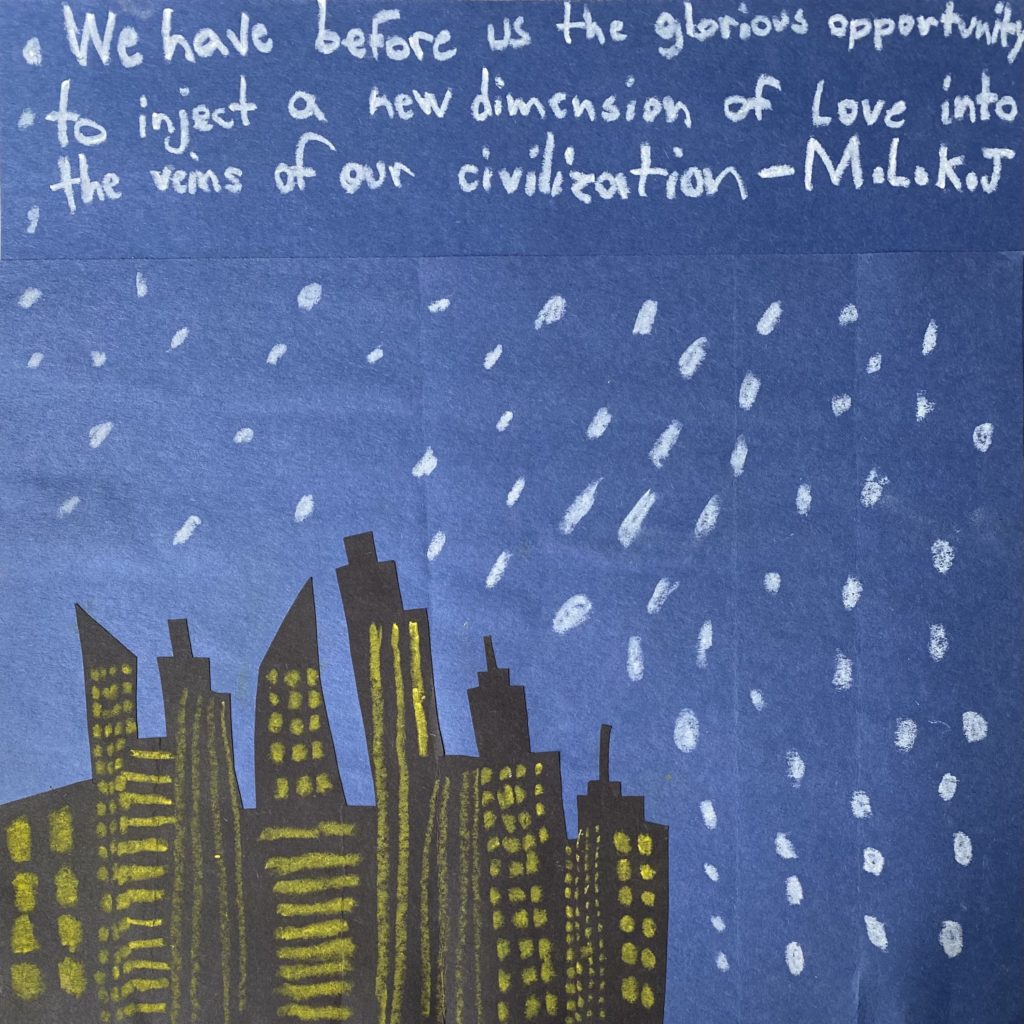 We have before us the glorious opportunity
to inject a new dimension of Love into
the veins of our civilization - M.L.K.J